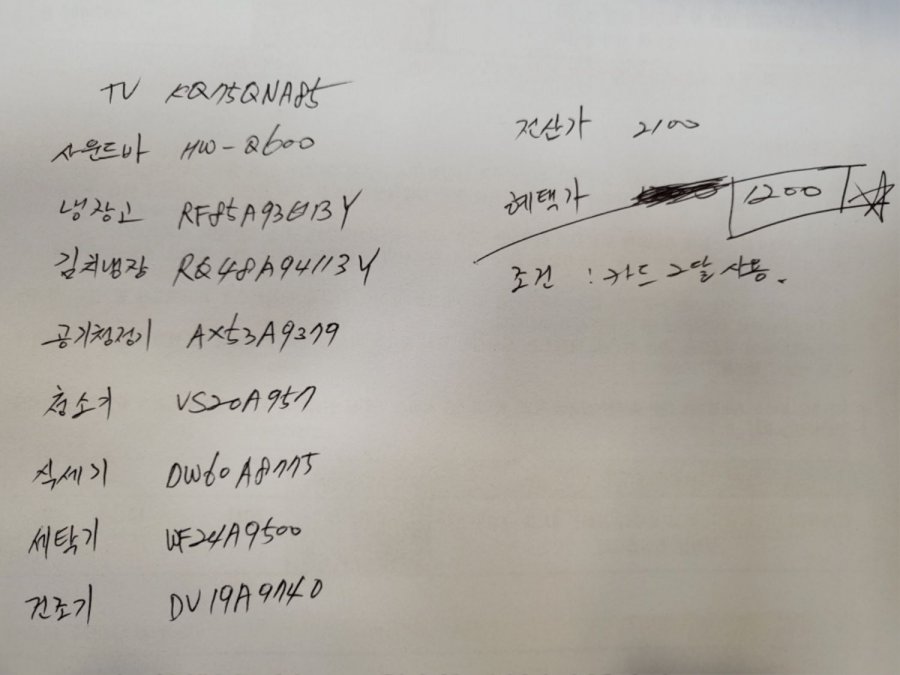 TV KQ75QNA85
사운드바 HW-Q600
냉장고 RF85A93H13Y
김치냉장 RQ48A94113Y
공기청정기 AX53A9379
청소기 VS20A957
식세기 DW60A8775
세탁기 WF24A9500
건조기 DV19A9740
전산가 2100
혜택가 1200
조건 : 카드 2달 사용.